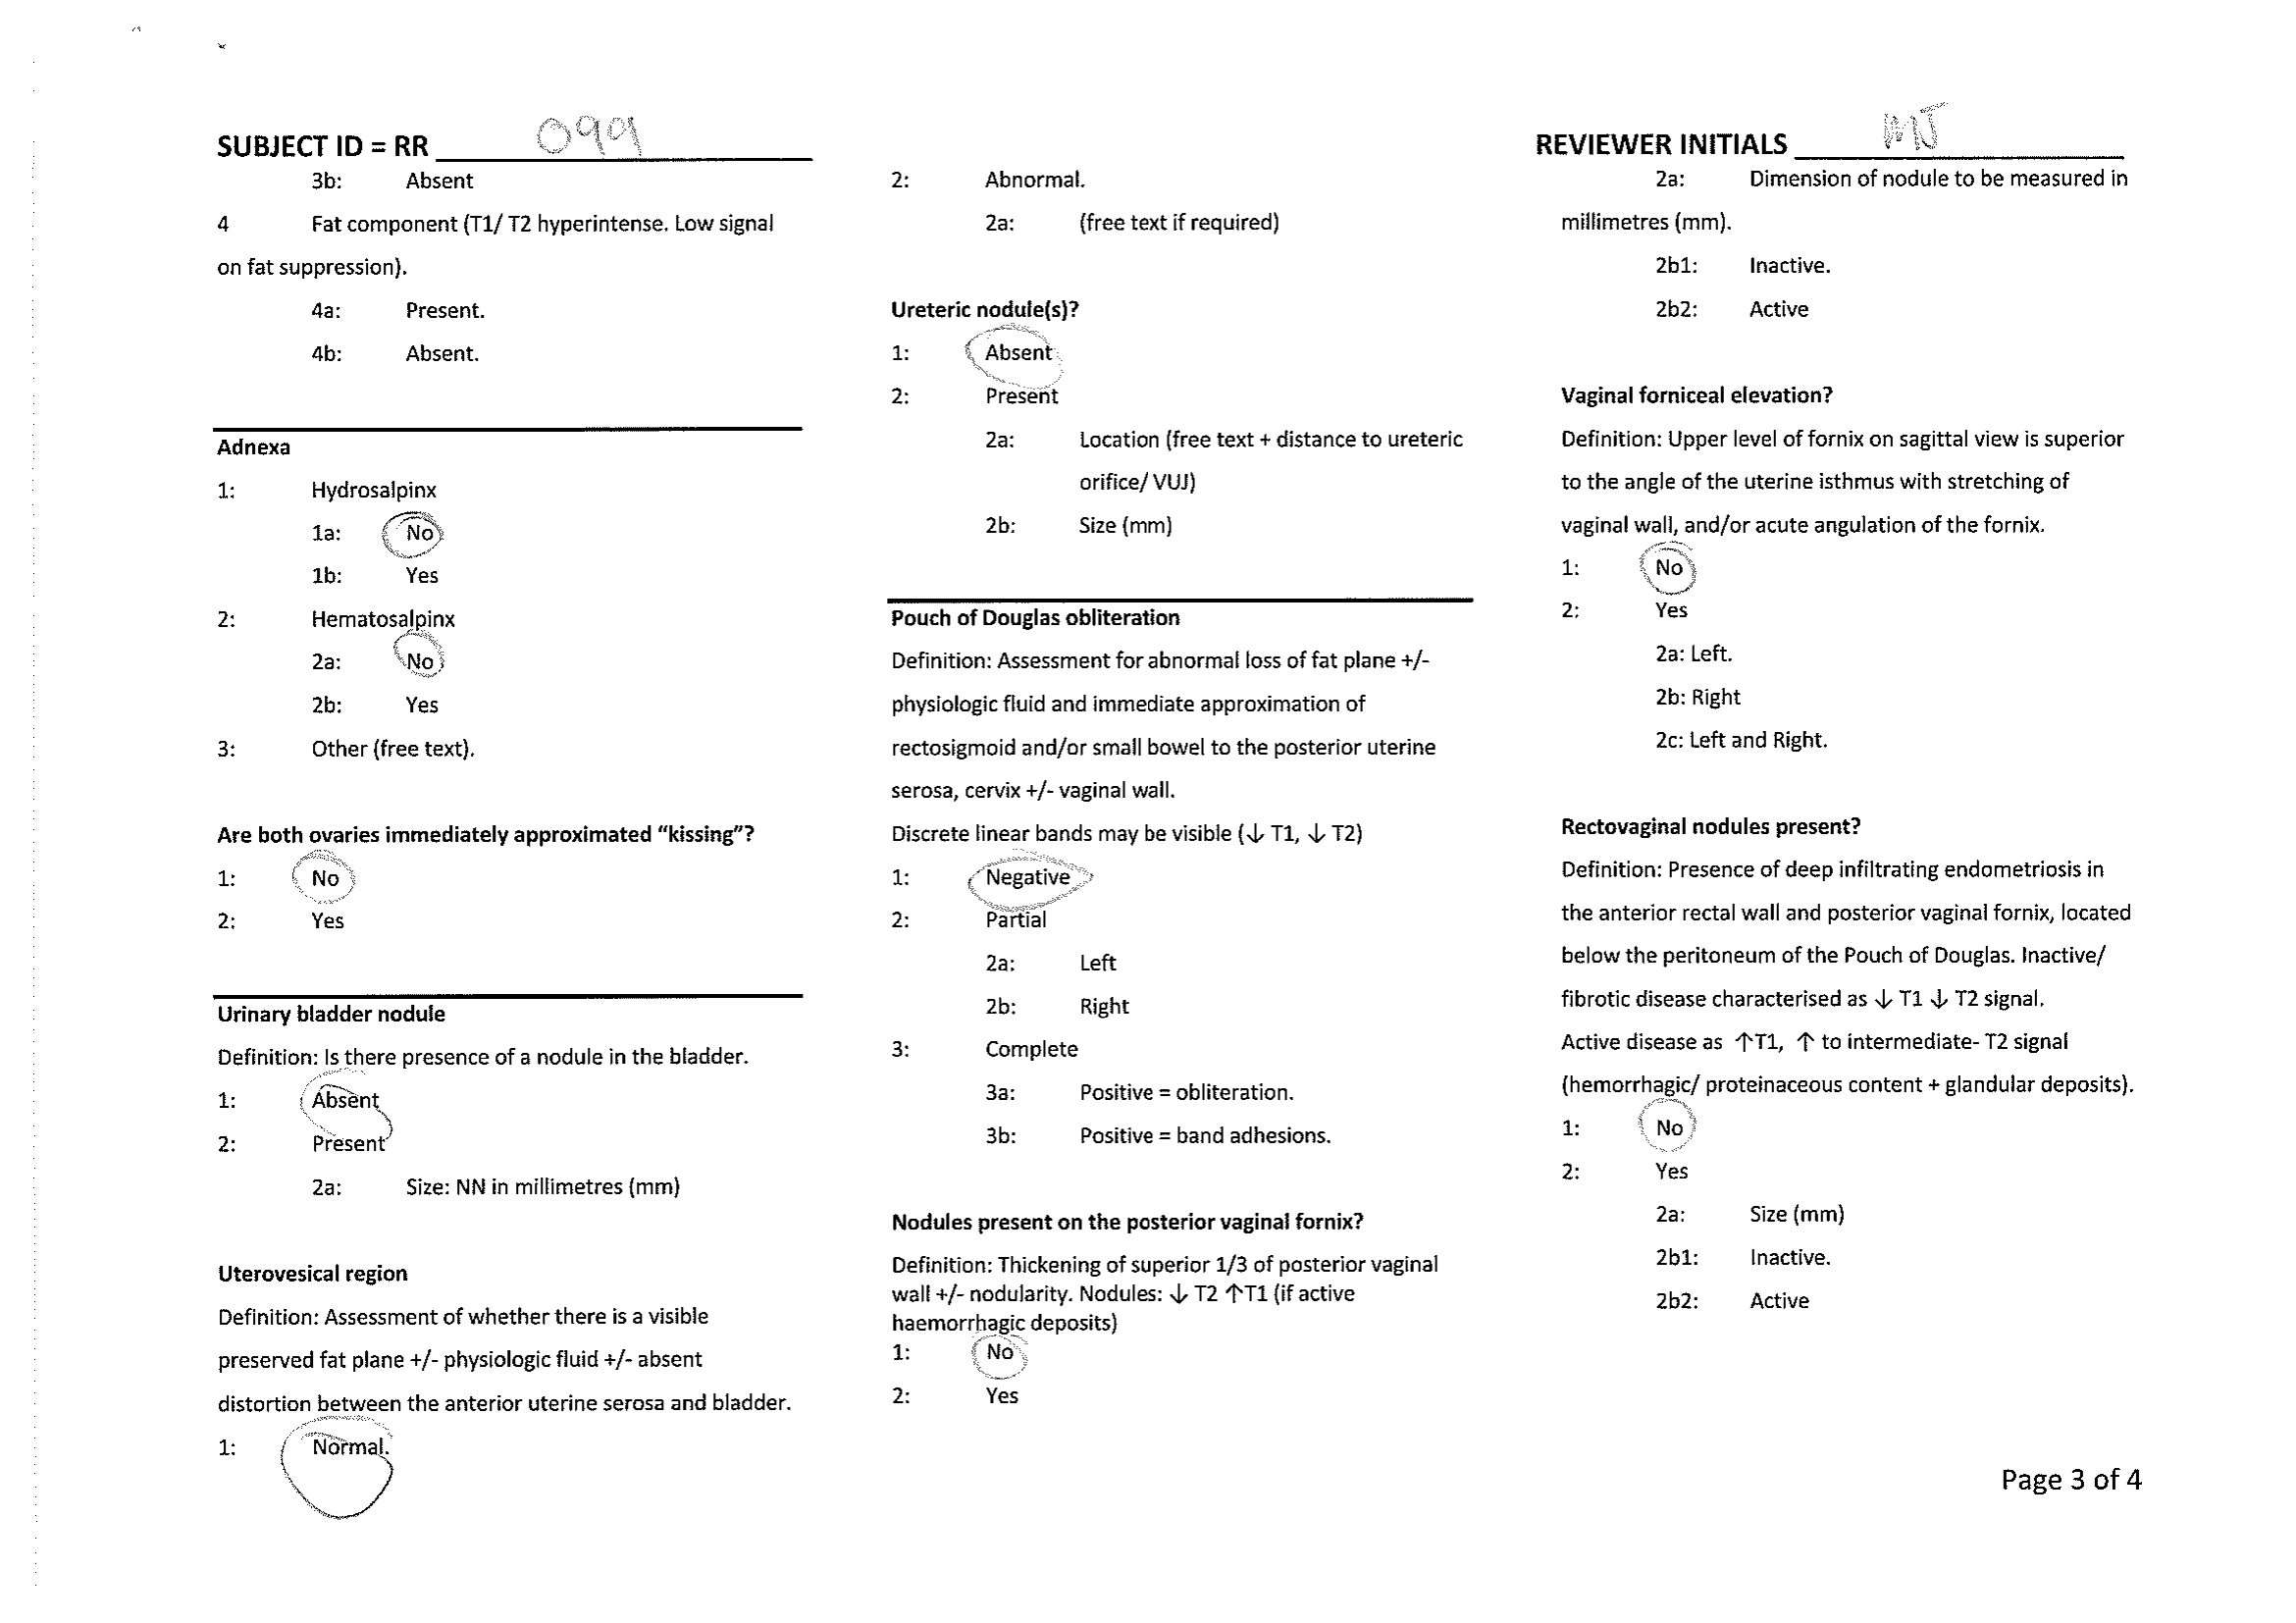 SUBJECT ID = RR 099
3b: Absent
4 Fat component (T1/ T2 hyperintense. Low signal
on fat suppression).
4a: Present.
4b: Absent.
Adnexa
1: Hydrosalpinx
1a: No
1b: Yes
2: Hematosalpinx
2a: No
2b: Yes
3: Other (free text).
Are both ovaries immediately approximated “kissing”?
1: No
2: Yes
Urinary bladder nodule
Definition: Is there presence of a nodule in the bladder.
1: Absent
2: Present
2a: Size: NN in millimetres (mm)
Uterovesical region
Definition: Assessment of whether there is a visible
preserved fat plane +/- physiologic fluid +/- absent
distortion between the anterior uterine serosa and bladder.
1: Normal.
2: Abnormal.
2a: (free text if required)
Ureteric nodule(s)?
1: Absent
2: Present
2a: Location (free text + distance to ureteric
orifice/ VUJ)
2b: Size (mm)
Pouch of Douglas obliteration
Definition: Assessment for abnormal loss of fat plane +/-
physiologic fluid and immediate approximation of
rectosigmoid and/or small bowel to the posterior uterine
serosa, cervix +/- vaginal wall.
Discrete linear bands may be visible (↓ T1, ↓ T2)
1: Negative
2: Partial
2a: Left
2b: Right
3: Complete
3a: Positive = obliteration.
3b: Positive = band adhesions.
Nodules present on the posterior vaginal fornix?
Definition: Thickening of superior 1/3 of posterior vaginal
wall +/- nodularity. Nodules: ↓ T2 ↑T1 (if active
haemorrhagic deposits)
1: No
2: Yes
REVIEWER INITIALS MJ
2a: Dimension of nodule to be measured in
millimetres (mm).
2b1: Inactive.
2b2: Active
Vaginal forniceal elevation?
Definition: Upper level of fornix on sagittal view is superior
to the angle of the uterine isthmus with stretching of
vaginal wall, and/or acute angulation of the fornix.
1: No
2: Yes
2a: Left.
2b: Right
2c: Left and Right.
Rectovaginal nodules present?
Definition: Presence of deep infiltrating endometriosis in
the anterior rectal wall and posterior vaginal fornix, located
below the peritoneum of the Pouch of Douglas. Inactive/
fibrotic disease characterised as ↓ T1 ↓ T2 signal.
Active disease as ↑T1, ↑ to intermediate- T2 signal
(hemorrhagic/ proteinaceous content + glandular deposits).
1: No
2: Yes
2a: Size (mm)
2b1: Inactive.
2b2: Active
Page 3 of 4